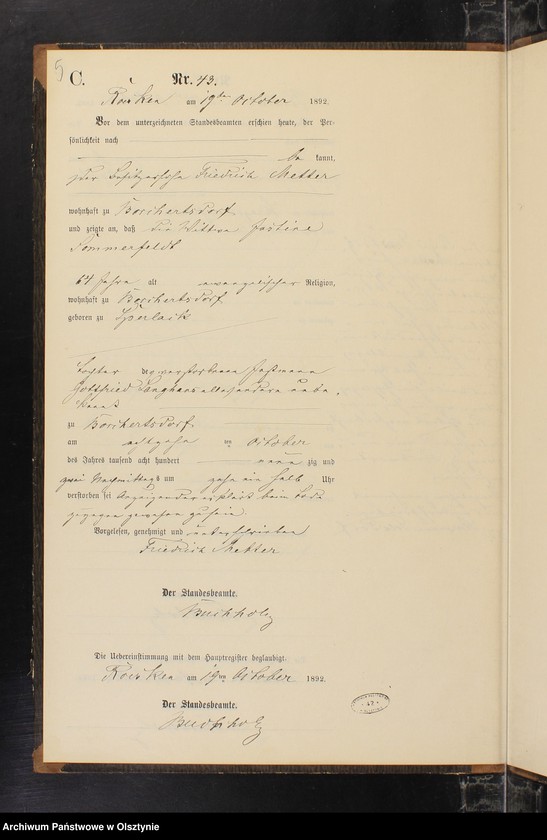 5
C.
Nr. 43.
am 19ten October 1892.
Vor dem unterzeichneten Standesbeamten erschien heute, der Per-
sönlichkeit nach
be kannt,
der Besitzersohn Friedrich Metter
wohnhaft zu Borchertsdorf
und zeigte an, daß die Wittwe Justine
Sommerfeldt
64 Jahre alt evangelischer Religion,
wohnhaft zu Borchertsdorf
geboren zu
Tochter des verstorbenen
Gottfried
zu Borchertsdorf
am achtzehn ten October
des Jahres tausend acht hundert neun zig und
zwei Nachmittags um zehn ein halb Uhr
verstorben sei
gegen gewesen zu sein
Vorgelesen, genehmigt und unterschrieben
Friedrich Metter
Der Standesbeamte.
Buchholz
Die Uebereinstimmung mit dem Hauptregister beglaubigt.
am 19ten October 1892.
Der Standesbeamte.
Buchholz
Archiwum Państwowe w Olsztynie